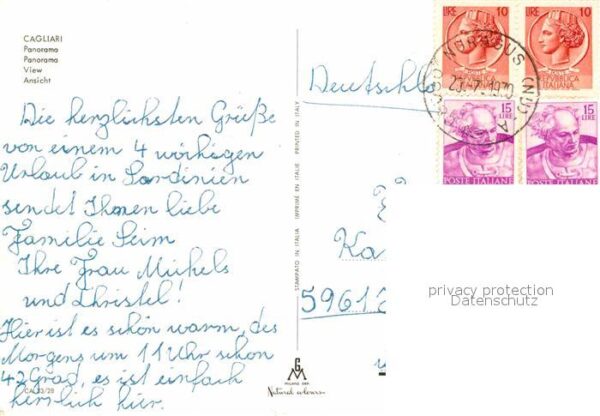 CAGLIARI
Panorama
Panorama
View
Ansicht
Die herzlichsten Grüße
von einem 4 wöchigen
Urlaub in Sardinien
sendet Ihnen liebe
Familie Seim
Ihre Frau Michels
und Christel!
Hier ist es schön warm, des
Morgens um 11 Uhr schon
42 Grad, es ist einfach
herrlich hier.
STAMPATO IN ITALIA IMPRIMÉ EN ITALIE PRINTED IN ITALY
MILANO
Natural colours
LIRE 10
LIRE 10
REPUBBLICA
ITALIANA
NURAGUS (NU)
1970
15
LIRE
15
LIRE
POSTE ITALIANE
POSTE ITALIANE
Deutschla
Ka
5961
privacy protection
Datenschutz